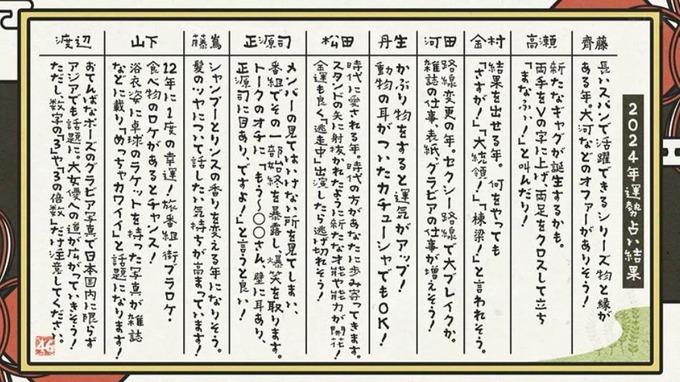 2024年運勢占い結果
齊藤
長いスパンで活躍できるシリーズ物と縁が
ある年。大河などのオファーがありそう!
高瀬
新たなギャグが誕生するかも。
両手をVの字に上げ、両足をクロスして立ち
「まなふぃ!」と叫んだり!
金村
結果を出せる年。何をやっても
「さすが!」「大統領!」「棟梁!」と言われそう。
河田
路線変更の年。セクシー路線で大ブレイクか。
雑誌の仕事、表紙、グラビアの仕事が増えそう!
丹生
かぶり物をすると運気がアップ!
動物の耳がついたカチューシャでもOK!
松田
時代に愛される年。時代の方があなたに歩み寄ってきます。
スタンドの矢に射抜かれたように新たな才能や能力が開花!
金運も良く「逃走中」出演したら逃げ切れそう!
正源司
メンバーの見てはいけない所を見てしまい、
番組でその一部始終を暴露し、爆笑を取ります。
トークのオチに「もう〜〇〇さん、壁に耳あり、
正源司に目あり、ですよ!」と言うと良い!
藤嶌
シャンプーとリンスの香りを変える年になりそう。
髪のツヤについて話したい気持ちが高まっています!
山下
12年に1度の幸運!旅番組、街ブラロケ・
食べ物のロケがあるとチャンス!
浴衣姿に卓球のラケットを持った写真が雑誌
などに載り「めっちゃカワイイ」と話題になります!
渡辺
おてんばなポーズのグラビア写真で日本国内に限らず
アジアでも話題に。大女優への道が広がっていきそう!
ただし、数字の「3」や「3の倍数」だけ注意してください。
46